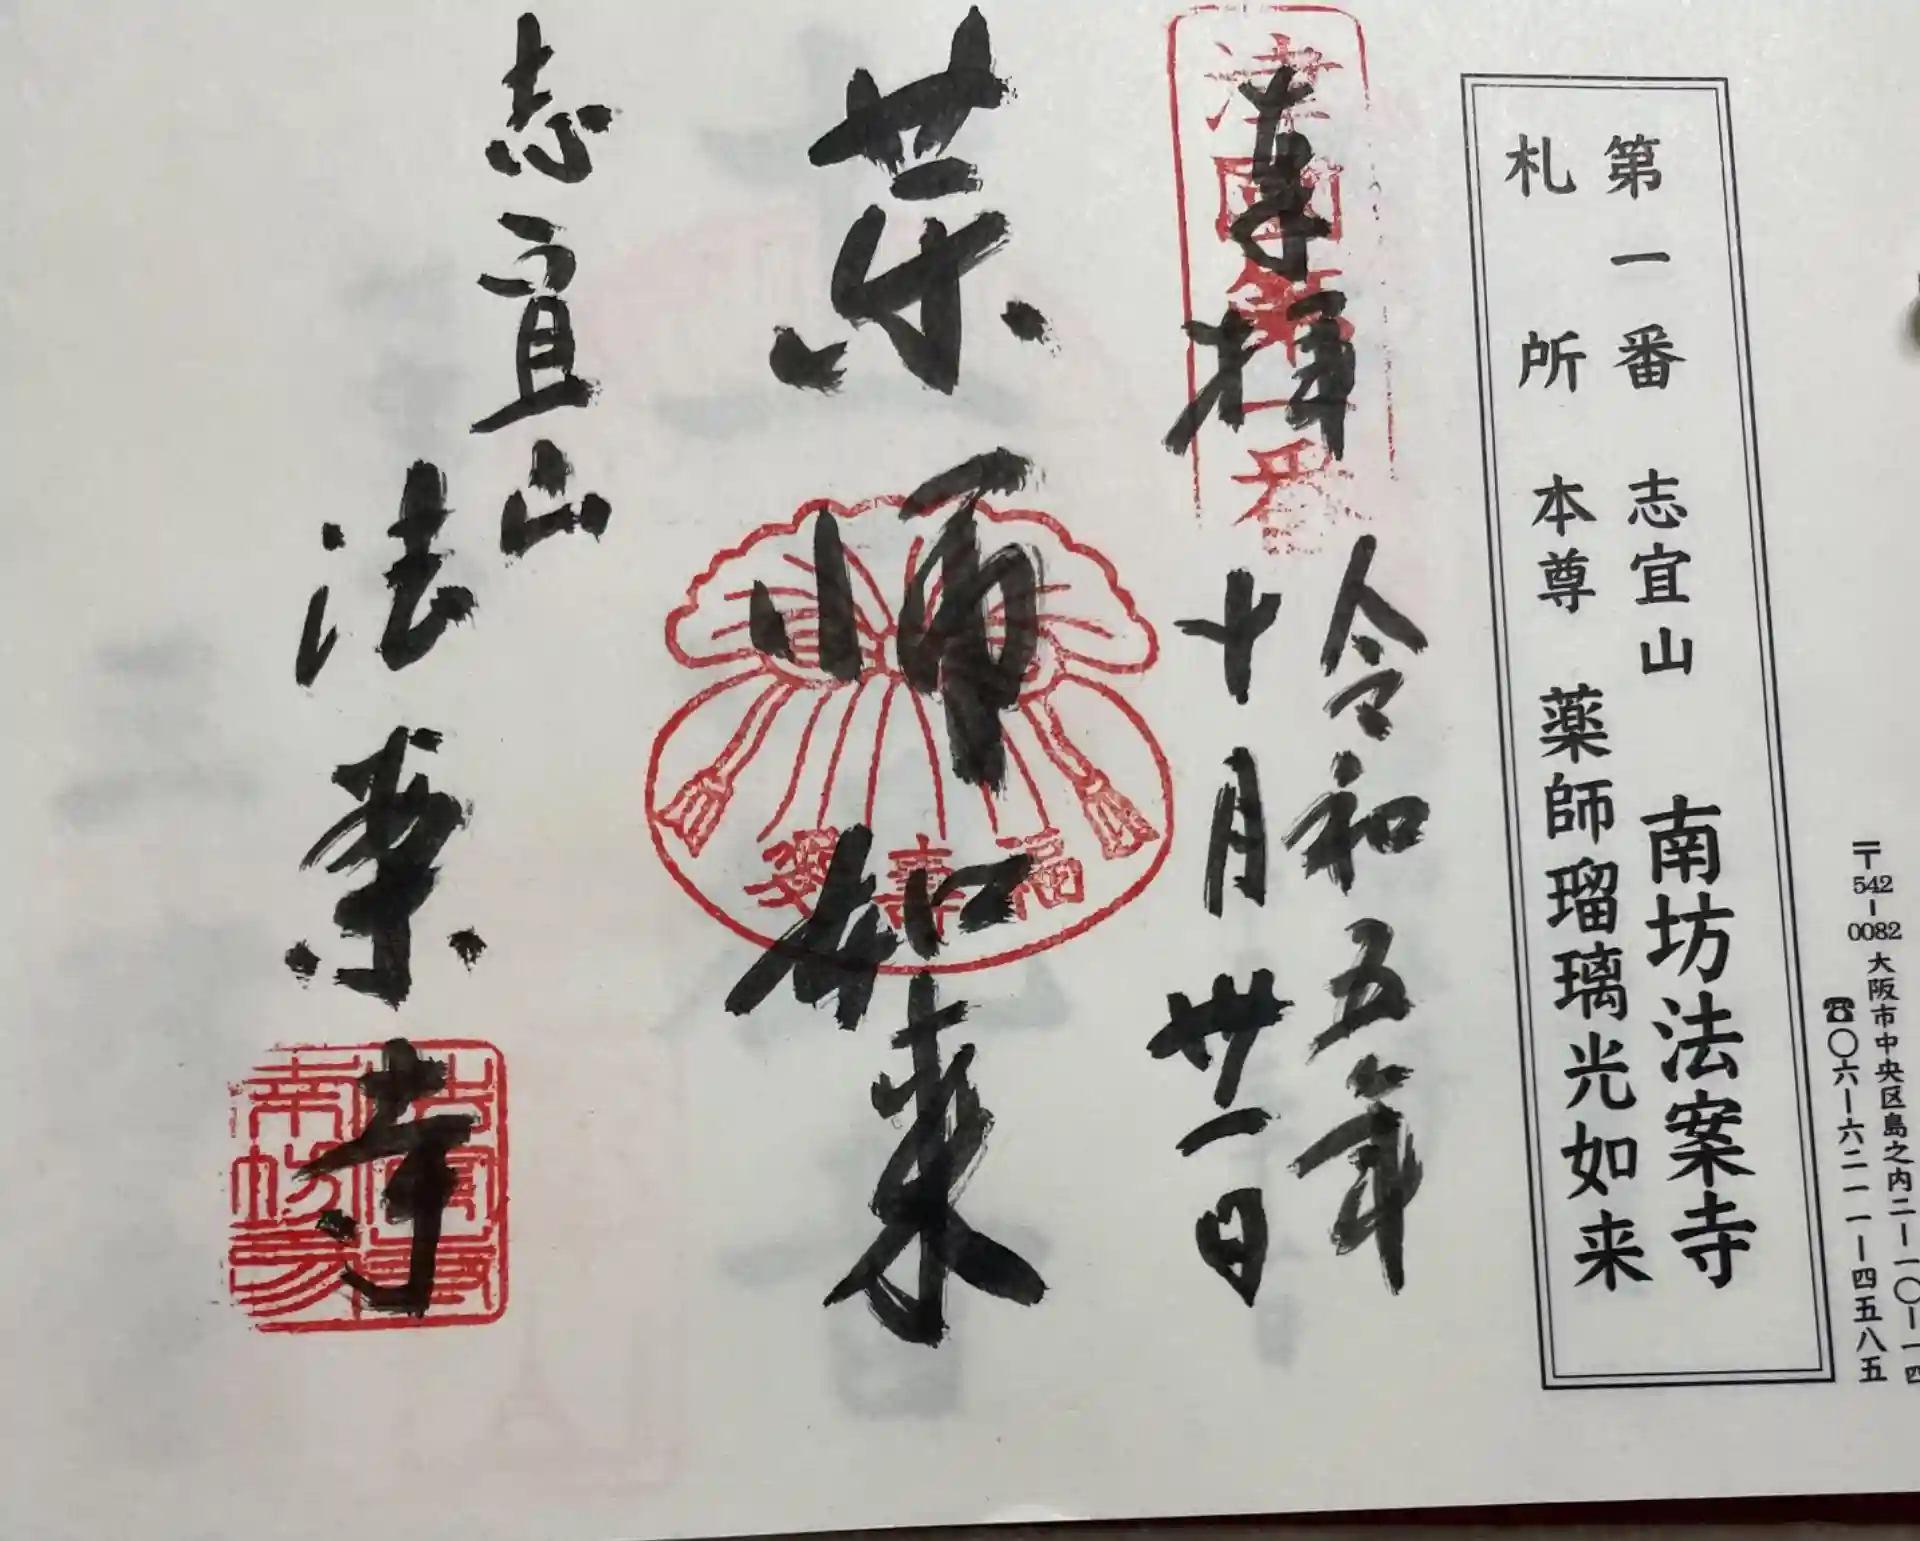 〒542-0082 大阪市中央区島之内二-一〇-一四
☎〇六-六二一一-四五八五
第一番 志宜山 南坊法案寺
札所 本尊 薬師瑠璃光如来
奉拝
令和五年
十月卅一日
薬師如来
志宜山
法案寺